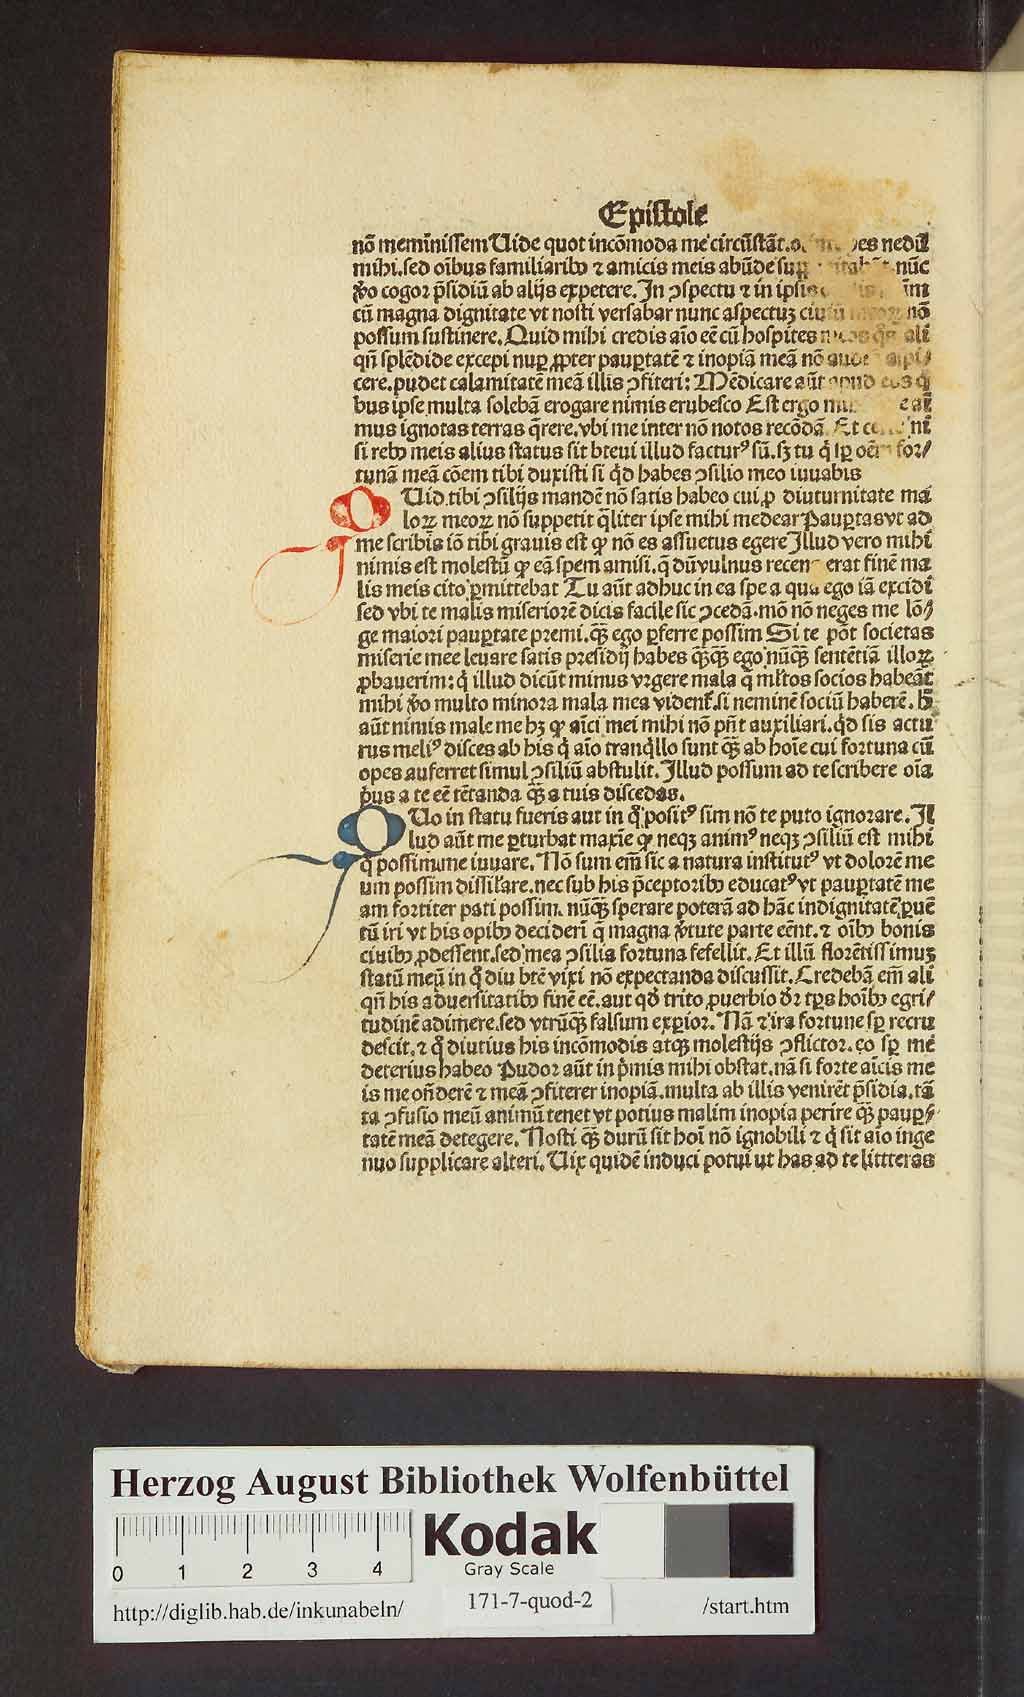 Epistole
nō meminissem Uide quot incōmoda me circūstāt. nedū
mihi. sed oībus familiaribꝰ ⁊ amicis meis abūde nūc
ṽo cogor p̄sidiū ab alijs expetere. In ꝯspectu ⁊ in
cū magna dignitate vt nosti versabar nunc aspectuꝫ nō
possum sustinere. Quid mihi credis aīo eē cū hospites ali
qn̄ splēdide excepi nuꝑ ꝓpter pauꝑtatē ⁊ inopiā meā nō
cere. pudet calamitatē meā illis ꝯfiteri: Mēdicare aūt apud eos q̇
bus ipse multa solebā erogare nimis erubesco Est ergo aī
mus ignotas terras q̄rere. vbi me inter nō notos recōdā. Et ni
si rebꝰ meis alius status sit breui illud facturꝰ sū. sꝫ tu q̇ sꝑ oēm for⸗
tunā meā cōem tibi duxisti si qd̓ habes ꝯsilio meo iuuabis
QUid tibi ꝯsilijs mandē nō satis habeo cui ꝓ diuturnitate ma
loꝝ meoꝝ nō suppetit q̄liter ipse mihi medear Pauꝑtas vt ad
me scribis iō tibi grauis est ꝙ nō es assuetus egere Illud vero mihi
nimis est molestū ꝙ eā spem amisi. q̄ dū vulnus recens erat finē ma
lis meis cito ꝓmittebat Tu aūt adhuc in ea spe a qua ego iā excidi
sed vbi te malis miseriorē dicis facile sic ꝯcedā. mō nō neges me lō⸗
ge maiori pauꝑtate premi. qꝫ̄ ego ꝑferre possim Si te pōt societas
miserie mee leuare satis presidij habes qꝫ̄qꝫ̄ ego nūqꝫ̄ sentētiā illoꝝ
ꝓbauerim: q̇ illud dicūt minus vrgere mala q̄ ml̓tos socios habeāt
mihi ṽo multo minora mala mea vident̓. si neminē sociū haberē. h̄
aūt nimis male me hꝫ ꝙ aīci mei mihi nō pn̄t auxiliari. qd̓ sis actu
rus meliꝰ disces ab his q̇ aīo tranq̇llo sunt qꝫ̄ ab hoīe cui fortuna cū
opes auferret simul ꝯsiliū abstulit. Illud possum ad te scribere oīa
p̓us a te eē tētanda qꝫ̄ a tuis discedas.
QUo in statu fueris aut in q̊ positꝰ sim nō te puto ignorare. Il
lud aūt me ꝑturbat maxīe ꝙ neqꝫ animꝰ neqꝫ ꝯsiliū est mihi
q̊ possim me iuuare. Nō sum em̄ sic a natura institutꝰ vt dolorē me
um possim dissil̓are. nec sub his p̄ceptoribꝰ educatꝰ vt pauꝑtatē me
am fortiter pati possim. nūqꝫ̄ sperare poterā ad hāc indignitatē ꝑuē
tū iri vt his opibꝰ deciderī q̄ magna ṽtute parte eēnt. ⁊ oībꝰ bonis
ciuibꝰ ꝓdessent. sed mea ꝯsilia fortuna fefellit. Et illū florētissimuꝫ
statū meū in q̊ diu btē vixi nō expectanda discussit. Credebā em̄ ali
qn̄ his aduersitatibꝰ finē eē. aut qd̓ trito ꝓuerbio dr̄ tp̄s hoībꝰ egri⸗
tudinē adimere. sed vtrūqꝫ̄ falsum exꝑior. Nā ⁊ ira fortune sꝑ recru
descit. ⁊ q̊ diutius his incōmodis atqꝫ molestijs ꝯflictor. eo sꝑ me
deterius habeo Pudor aūt in p̓mis mihi obstat. nā si forte aīcis me
is me on̄derē ⁊ meā ꝯfiterer inopiā. multa ab illis venirēt p̄sidia. tā
ta ꝯfusio meū animū tenet vt potius malim inopia perire qꝫ̄ pauꝑ⸗
tatē meā detegere. Nosti qꝫ̄ durū sit hoī nō ignobili ⁊ q̇ sit aīo inge
nuo supplicare alteri. Uix quidē induci potui ut has ad te littteras
Herzog August Bibliothek Wolfenbüttel
0 1 2 3 4
Kodak
Gray Scale
http://diglib.hab.de/inkunabeln/ 171-7-quod-2 /start.htm